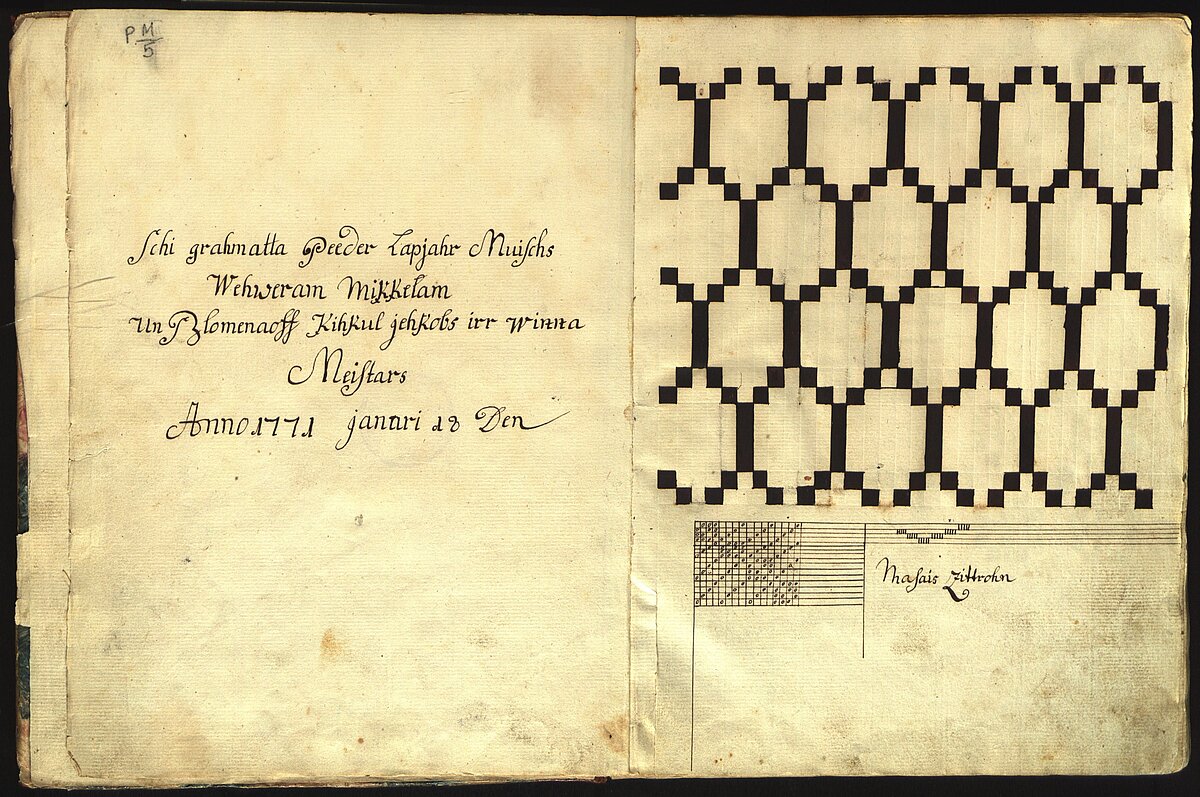 P M/5
Schi grahmatta Peeder Lapjahr Muischs
Wehweram Mikkelam
un Blomenaoff Kihkul jehkobs irr winna
Meistars
Anno 1771 januri 18 Den
Masais Zittrohn